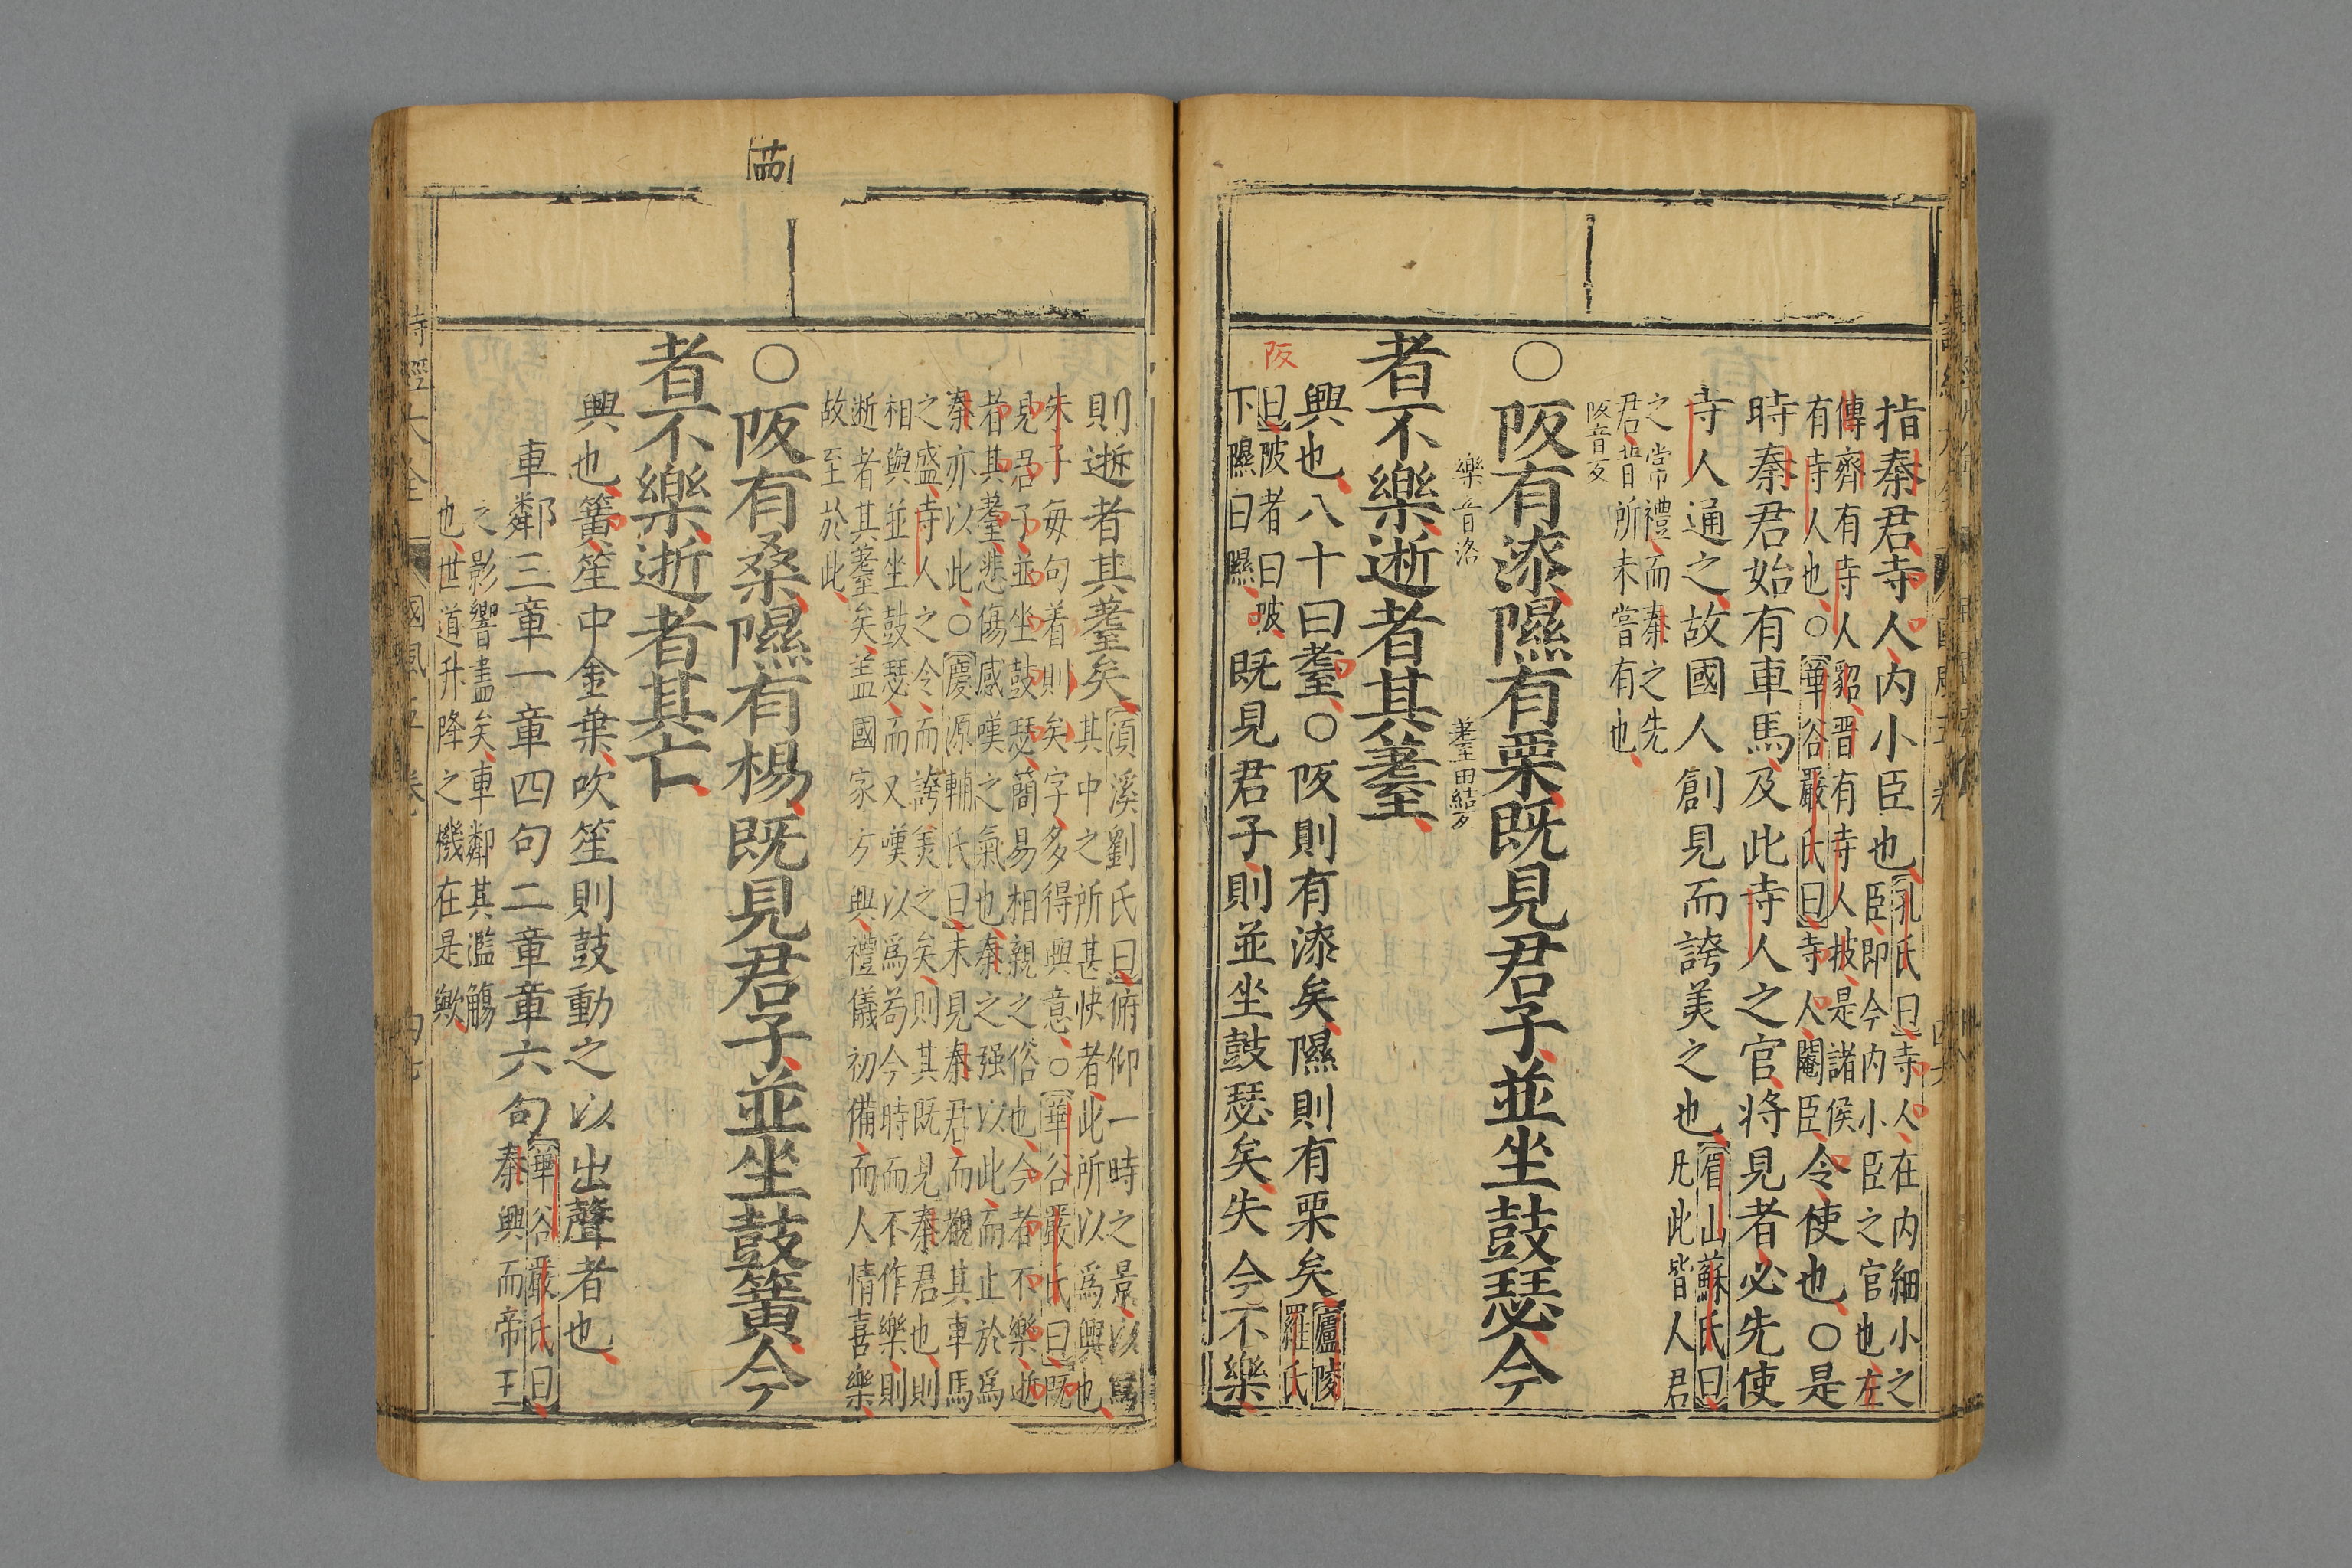 指秦君寺人内小臣也
孔氏曰寺人在内細小之
臣即今内小臣之官也左
傳齊有寺人貂晋有寺人披是諸侯
有寺人也○華谷嚴氏曰寺人閹臣
令使也○是
時秦君始有車馬及此寺人之官将見者必先使
寺人通之故國人創見而誇美之也
眉山蘇氏曰
凡此皆人君
之常禮而秦之先
君昔所未嘗有也
阪音反
○阪有漆隰有栗既見君子並坐鼓瑟今
樂音洛
耋田結反
者不樂逝者其耋
興也八十曰耋○阪則有漆矣隰則有栗矣
廬陵
羅氏
阪
曰陂者曰陂
下隰曰隰
既見君子則並坐鼓瑟矣失今不樂
則逝者其耋矣
湏溪劉氏曰俯仰一時之景以寫
其中之所甚快者此所以爲興也
朱子毎句着則矣字多得興意○華谷嚴氏曰既
見君子並坐鼓瑟簡易相親之俗也今者不樂逝
者其耋悲傷感嘆之氣也秦之强以此而止於爲
秦亦以此○慶源輔氏曰未見秦君而觀其車馬
之盛寺人之令而誇美之矣則其既見秦君也則
相與並坐鼓瑟而又嘆以爲苟今時而不作樂則
逝者其耋矣盖國家方興禮儀初備而人情喜樂
故至於此
○阪有桑隰有楊既見君子並坐鼓簧今
者不樂逝者其亡
興也簧笙中金葉吹笙則鼓動之以出聲者也
車鄰三章一章四句二章章六句
華谷嚴氏曰
秦興而帝王
之影響盡矣車鄰其濫觴
也世道升降之機在是歟
詩經大全
國風五卷
四七